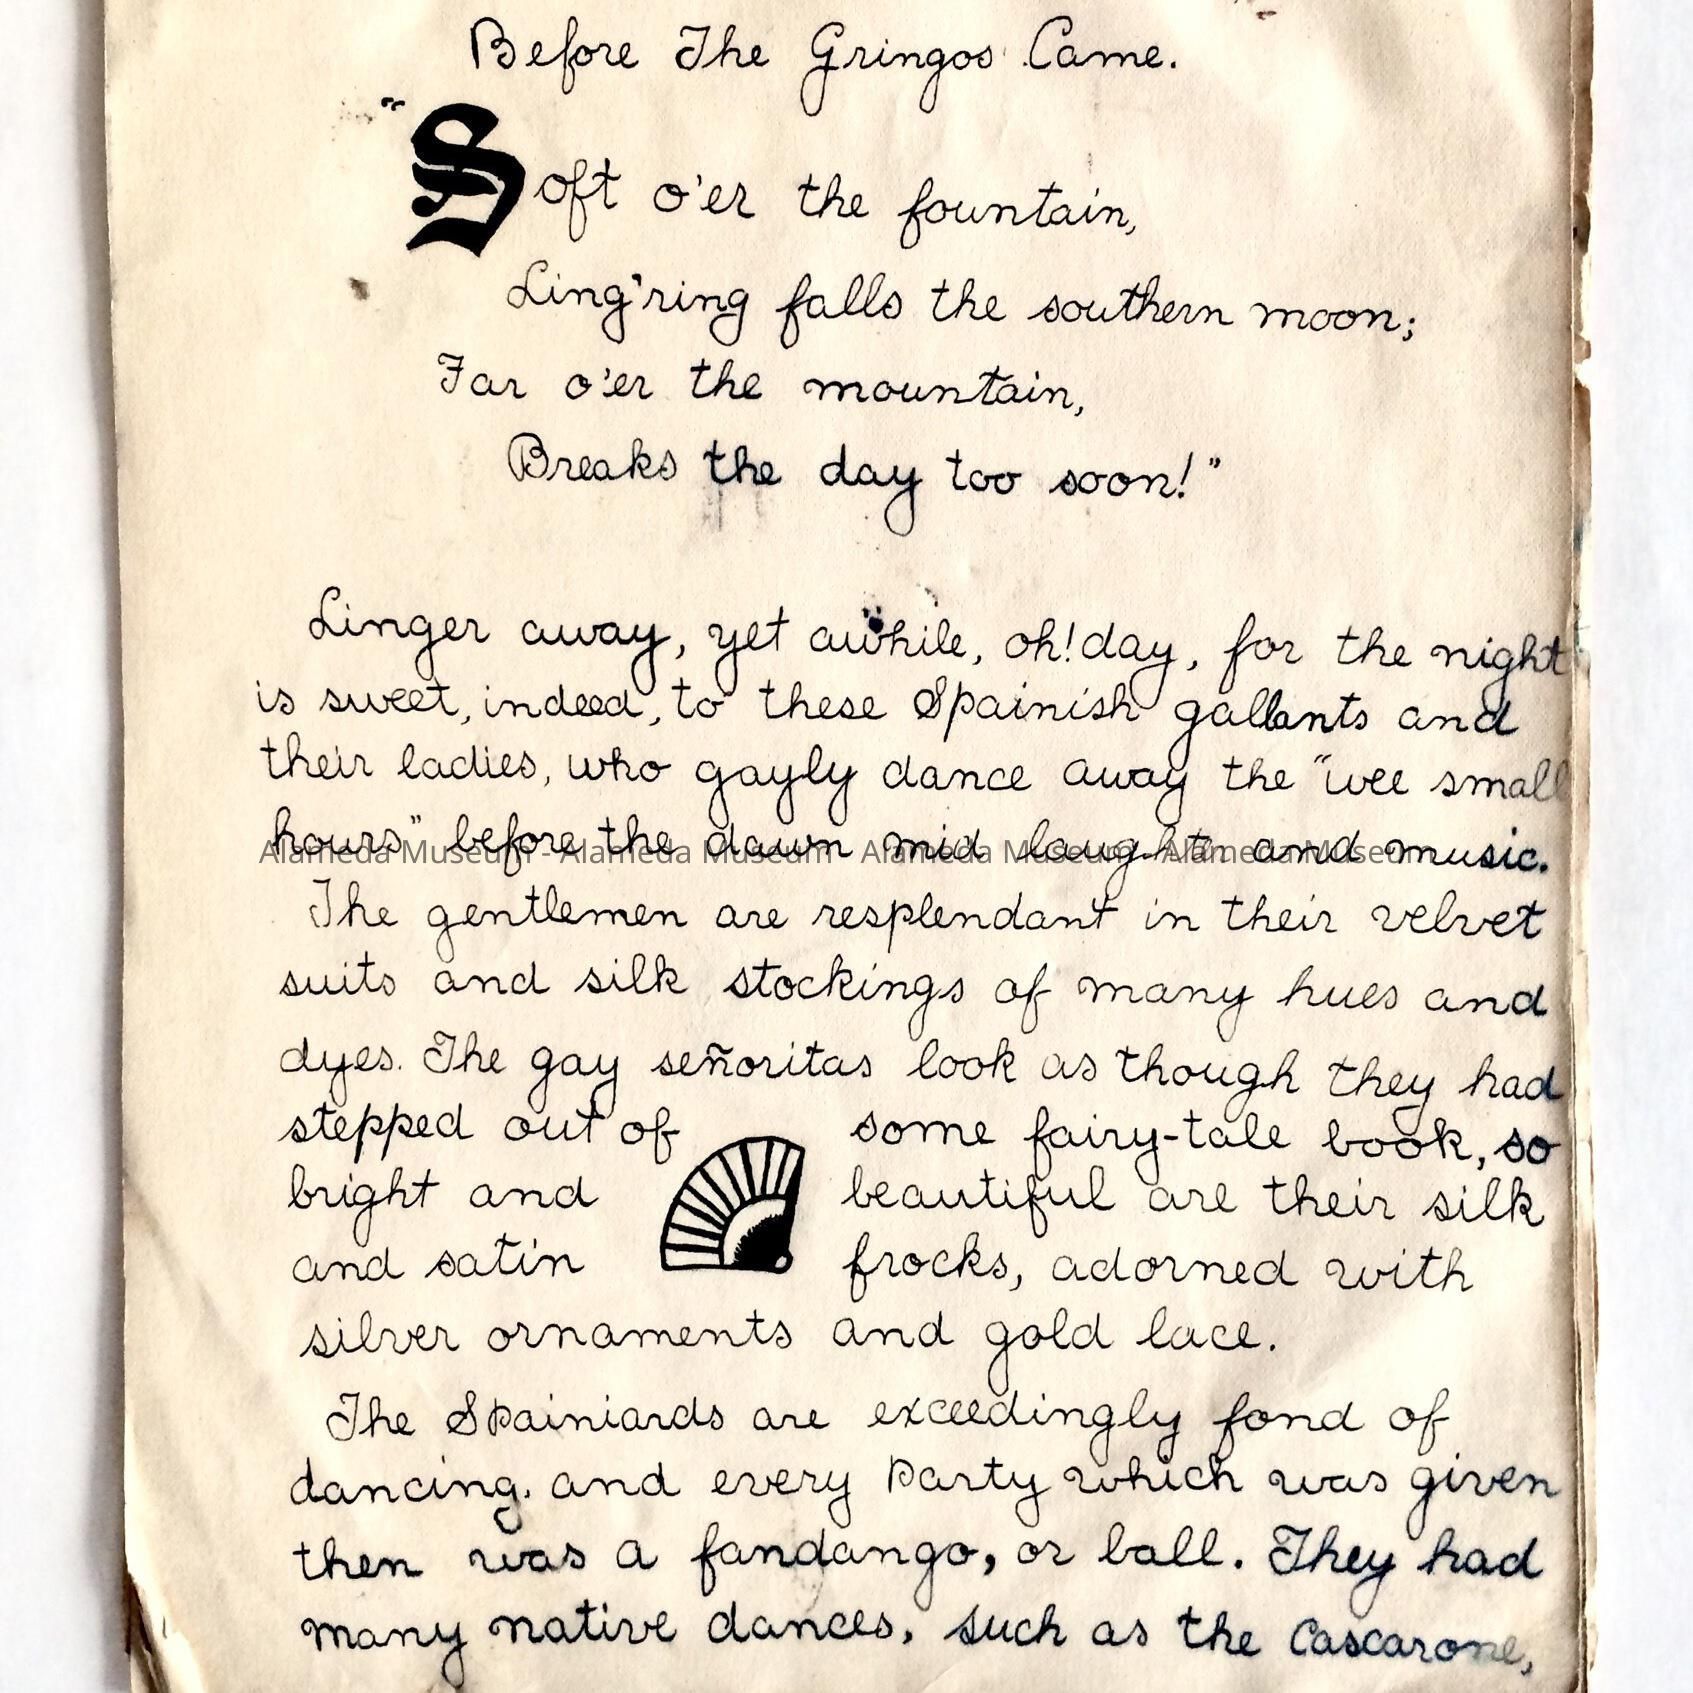 Before The Gringos Came.
"Soft o'er the fountain,
Ling'ring falls the southern moon;
Far o'er the mountain,
Breaks the day too soon!"
Linger away, yet awhile, oh! day, for the night
is sweet, indeed, to these Spainish gallants and
their ladies, who gayly dance away the "wee small
hours" before the dawn mid laughter and music.
Alameda Museum - Alameda Museum - Alameda Museum - Alameda Museum
The gentlemen are resplendant in their velvet
suits and silk stockings of many hues and
dyes. The gay señoritas look as though they had
stepped out of some fairy-tale book, so
bright and beautiful are their silk
and satin frocks, adorned with
silver ornaments and gold lace.
The Spainiards are exceedingly fond of
dancing, and every party which was given
then was a fandango, or ball. They had
many native dances, such as the Cascarone,